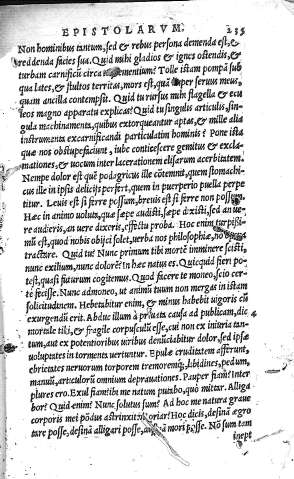 EPISTOLARVM. 235
Non hominibus tantum, sed & rebus persona demenda est, &
reddenda facies sua. Quid mihi gladios & ignes ostendis, &
turbam carnificũ circa te frementium? Tolle istam pompã sub
qua lates, & stultos territas, mors est, quã nuper seruus meus,
quam ancilla contempsit. Quid tu rursus mihi flagella & ecu
leos magno apparatu explicas? Quid tu singulis articulis, sin-
gula machinamenta, quibus extorqueantur aptas, & mille alia
instrumenta excarnificandi particulatim hominis? Pone ista
quæ nos obstupefaciunt, iube conticescere gemitus & excla-
mationes, & uocum inter lacerationem elisarum acerbitatem.
Nempe dolor est quẽ podagricus ille cõtemnit, quem stomachi-
cus ille in ipsis delicijs perfert, quem in puerperio puella perpe
titur. Leuis est si ferre possum, breuis est si ferre non possum.
Hæc in animo uoluta, quæ sæpe audisti, sæpe dixisti, sed an ue-
re audieris, an uere dixeris, effectu proba. Hoc enim turpissi-
mũ est, quod nobis obijci solet, uerba nos philosophiæ, no
tractare. Quid tu? Nunc primum tibi mortẽ imminere scisti,
nunc exilium, nunc dolorẽ? In hæc natus es. Quicquid fieri po-
test, quasi futurum cogitemus. Quod facere te moneo, scio cer-
te fecisse. Nunc admoneo, ut animũ tuum non mergas in istam
solicitudinem. Hebetabitur enim, & minus habebit uigoris cũ
exurgendũ erit. Abduc illum à priuata causa ad publicam, dic
mortale tibi, & fragile corpusculũ esse, cui non ex iniuria tan-
tum, aut ex potentioribus uiribus denũciabitur dolor, sed ipsæ
uoluptates in tormenta uertuntur. Epulæ cruditatem afferunt,
ebrietates neruorum torporem tremoremq́;, libidines, pedum,
manuũ, articulorũ omnium deprauationes. Pauper fiam? Inter
plures ero. Exul fiam? ibi me natum putabo, quò mittar. Alliga
bor? Quid enim? Nunc solutus sum? Ad hoc me natura graue
corporis mei põdus astrinxit. Moriar? Hoc dicis, desinã ægro
tare posse, desinã alligari posse, desinã mori posse. Nõ sum tam
inept